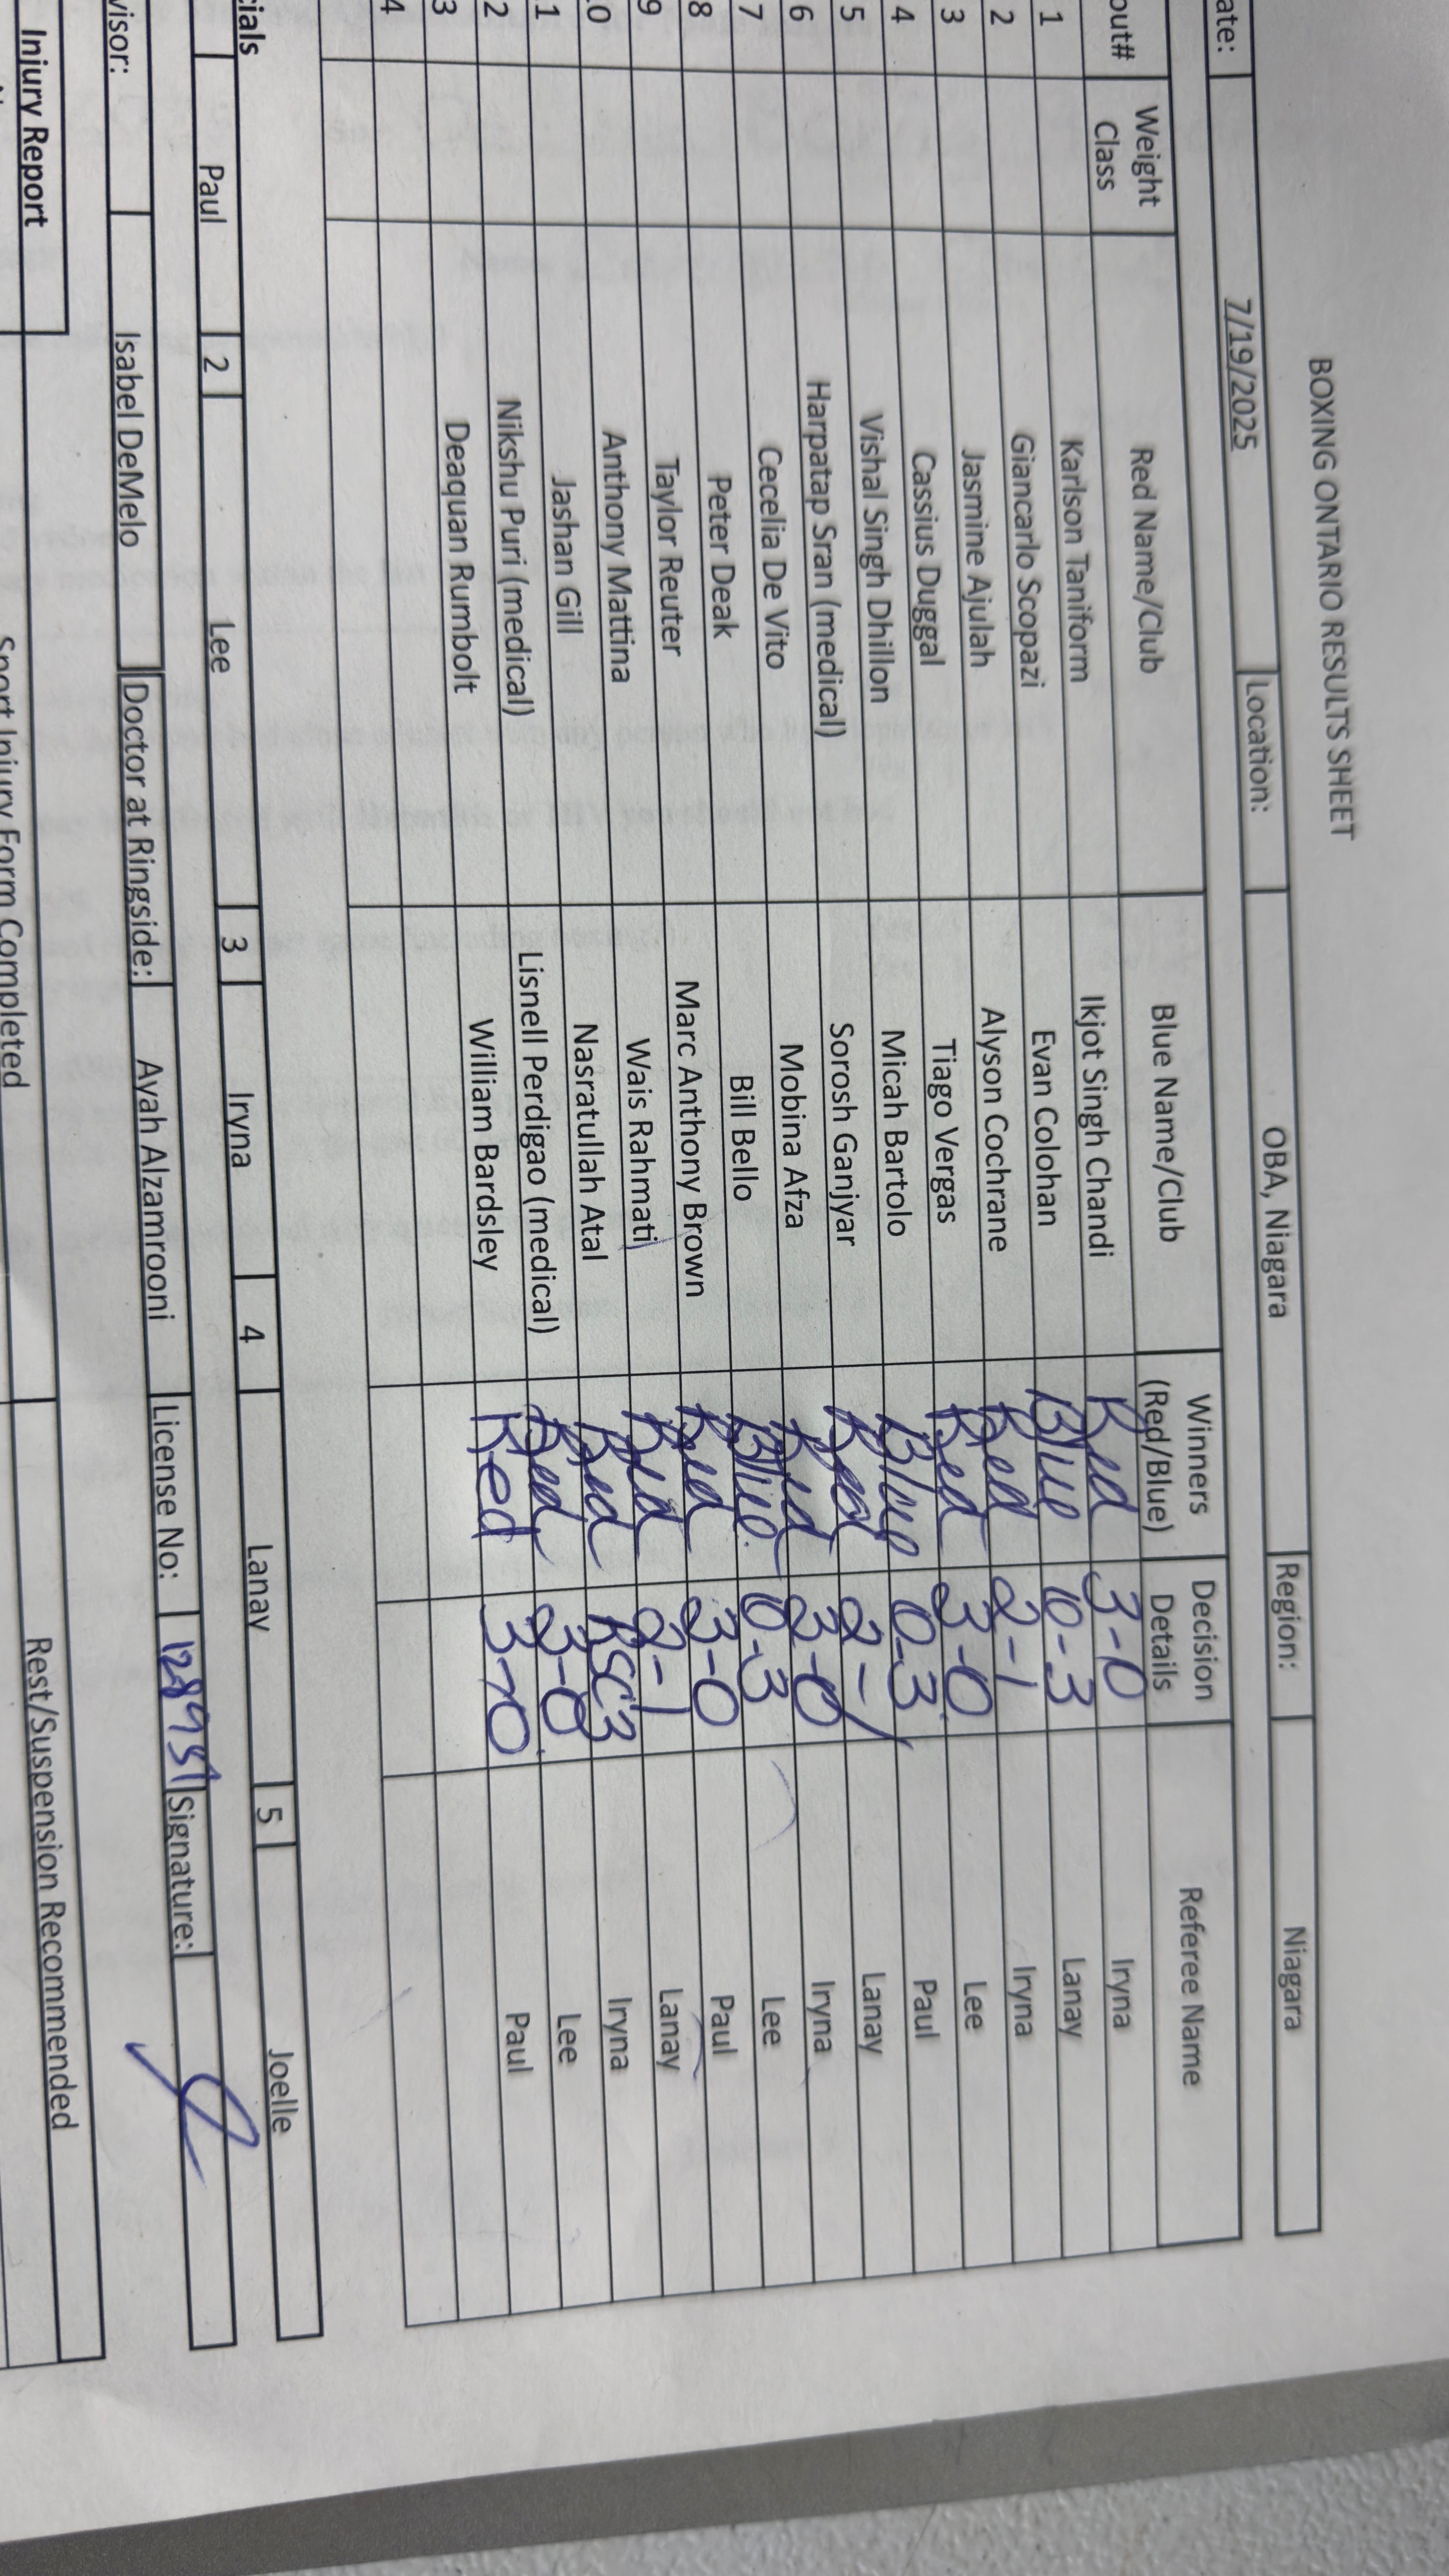 BOXING ONTARIO RESULTS SHEET
ate: 7/19/2025 Location: OBA, Niagara Region: Niagara
out# Weight Class Red Name/Club Blue Name/Club Winners (Red/Blue) Decision Details Referee Name
1 Karlson Taniform Ikjot Singh Chandi Red 3-0 Iryna
2 Giancarlo Scopazi Evan Colohan Blue 0-3 Lanay
3 Jasmine Ajulah Alyson Cochrane Red 2-1 Iryna
4 Cassius Duggal Tiago Vergas Red 3-0 Lee
5 Vishal Singh Dhillon Micah Bartolo Blue 0-3 Paul
6 Harpatap Sran (medical) Sorosh Ganjyar Red 2-1 Lanay
7 Cecelia De Vito Mobina Afza Red 3-0 Iryna
8 Peter Deak Bill Bello Blue 0-3 Lee
9 Taylor Reuter Marc Anthony Brown Red 3-0 Paul
0 Anthony Mattina Wais Rahmati Red 2-1 Lanay
1 Jashan Gill Nasratullah Atal Red RSC3 Iryna
2 Nikshu Puri (medical) Lisnell Perdigao (medical) Red 3-0 Lee
3 Deaquan Rumbolt William Bardsley Red 3-0 Paul
4
cials Paul 2 Lee 3 Iryna 4 Lanay 5 Joelle
visor: Isabel DeMelo Doctor at Ringside: Ayah Alzamrooni License No: Signature:
Injury Report Rest/Suspension Recommended
Sport Injury Form Completed